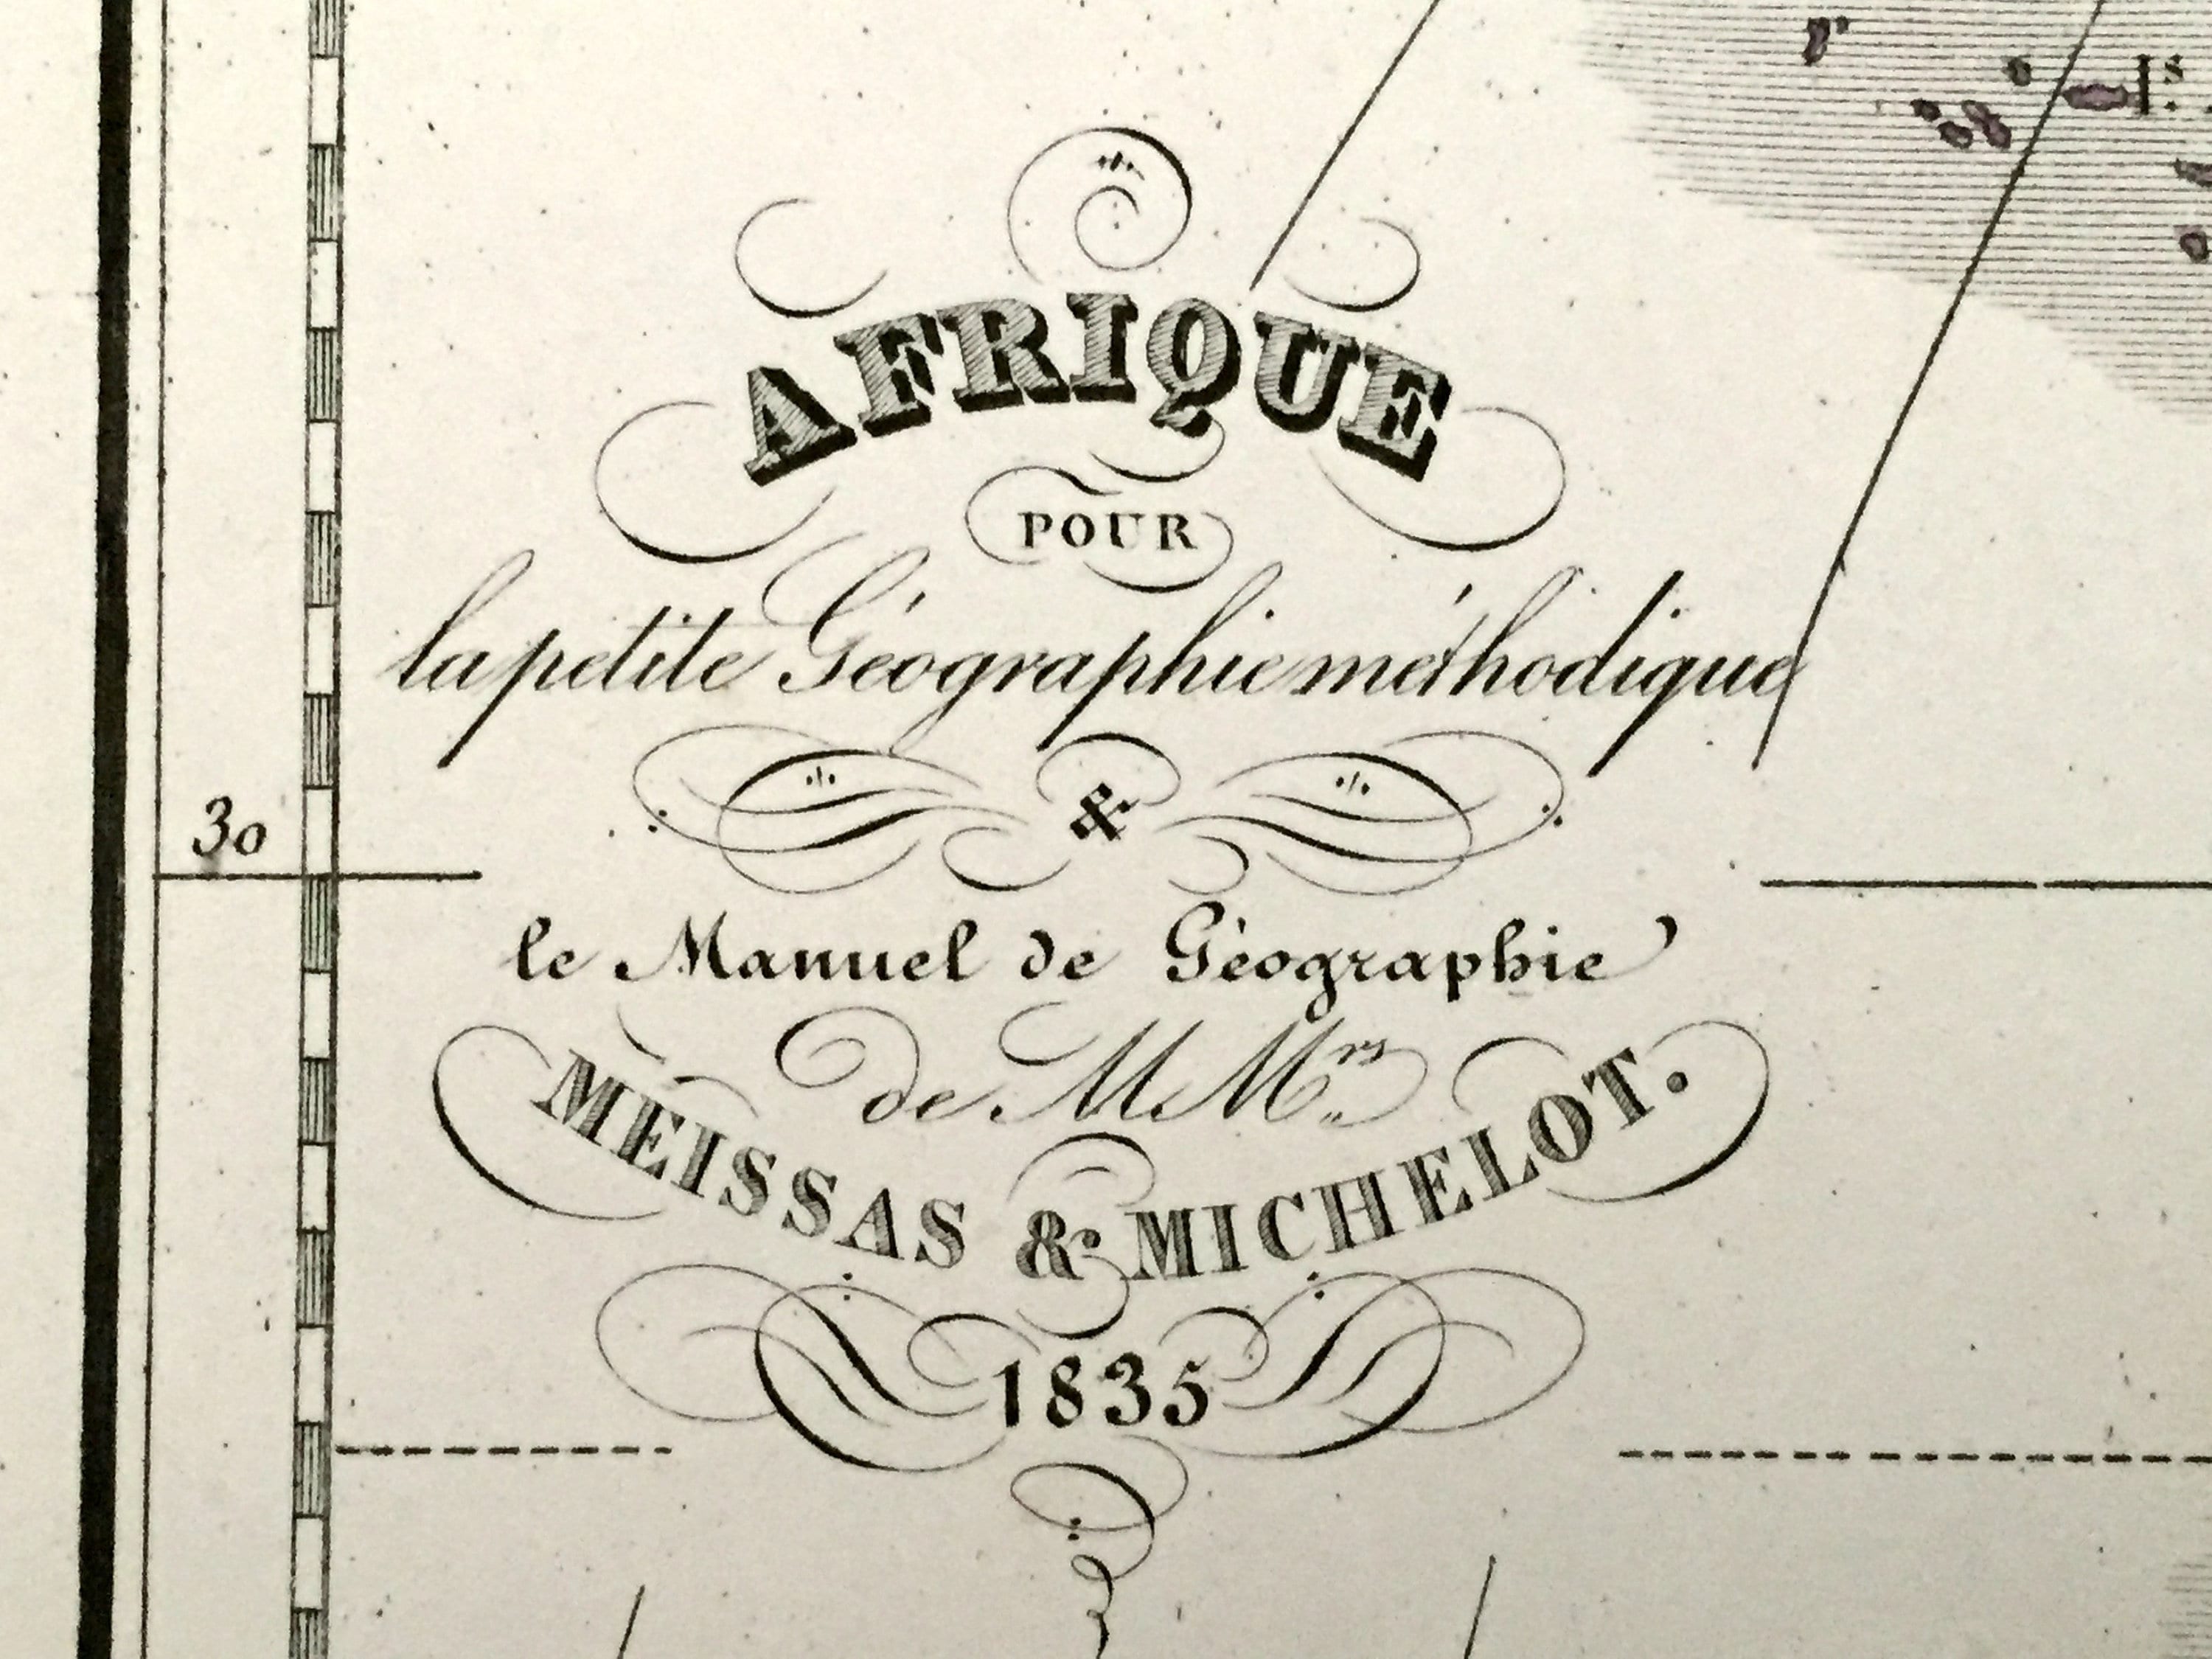 Is.
AFRIQUE
POUR
la petite Géographie méthodique
&
30
le Manuel de Géographie
de MMrs
MEISSAS & MICHELOT.
1835